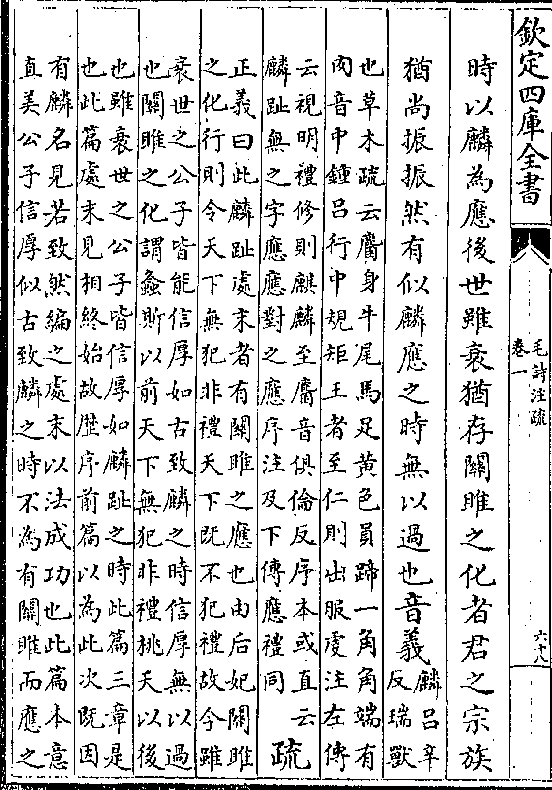 欽定四庫全書
毛詩注疏
卷一
六十八
時以麟為應後世雖衰猶存關雎之化者君之宗族
猶尚振振然有似麟應之時無以過也音義
麟呂辛
反瑞獸
也草木疏云麕身牛尾馬足黃色員蹄一角角端有
肉音中鍾呂行中規矩王者至仁則出服虔注左傳
云視明禮修則麒麟至麕音俱倫反序本或直云
麟趾無之字應應對之應序注及下傳應禮同
疏
正義曰此麟趾處末者有關雎之應也由后妃關雎
之化行則令天下無犯非禮天下既不犯禮故今雖
衰世之公子皆能信厚如古致麟之時信厚無以過
也關雎之化謂螽斯以前天下無犯非禮桃夭以後
也雖衰世之公子皆信厚如麟趾之時此篇三章是
也此篇處末見相終始故歷序前篇以為此次既因
有麟名見若致然編之處末以法成功也此篇本意
直美公子信厚似古致麟之時不為有關雎而應之